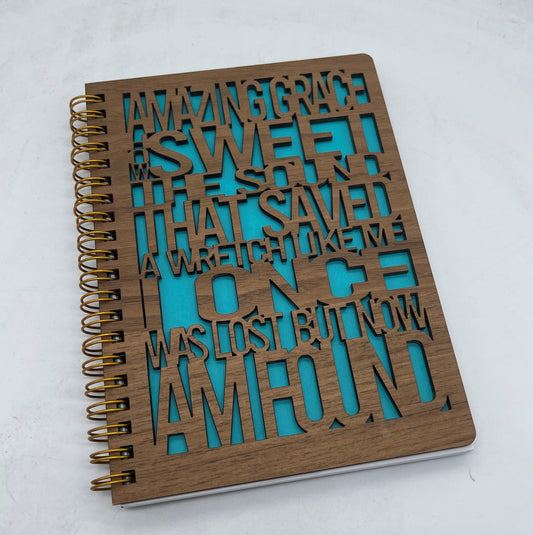 AMAZING GRACE
HOW SWEET
THE SOUND
THAT SAVED
A WRETCH LIKE ME
I ONCE
WAS LOST BUT NOW
AM FOUND